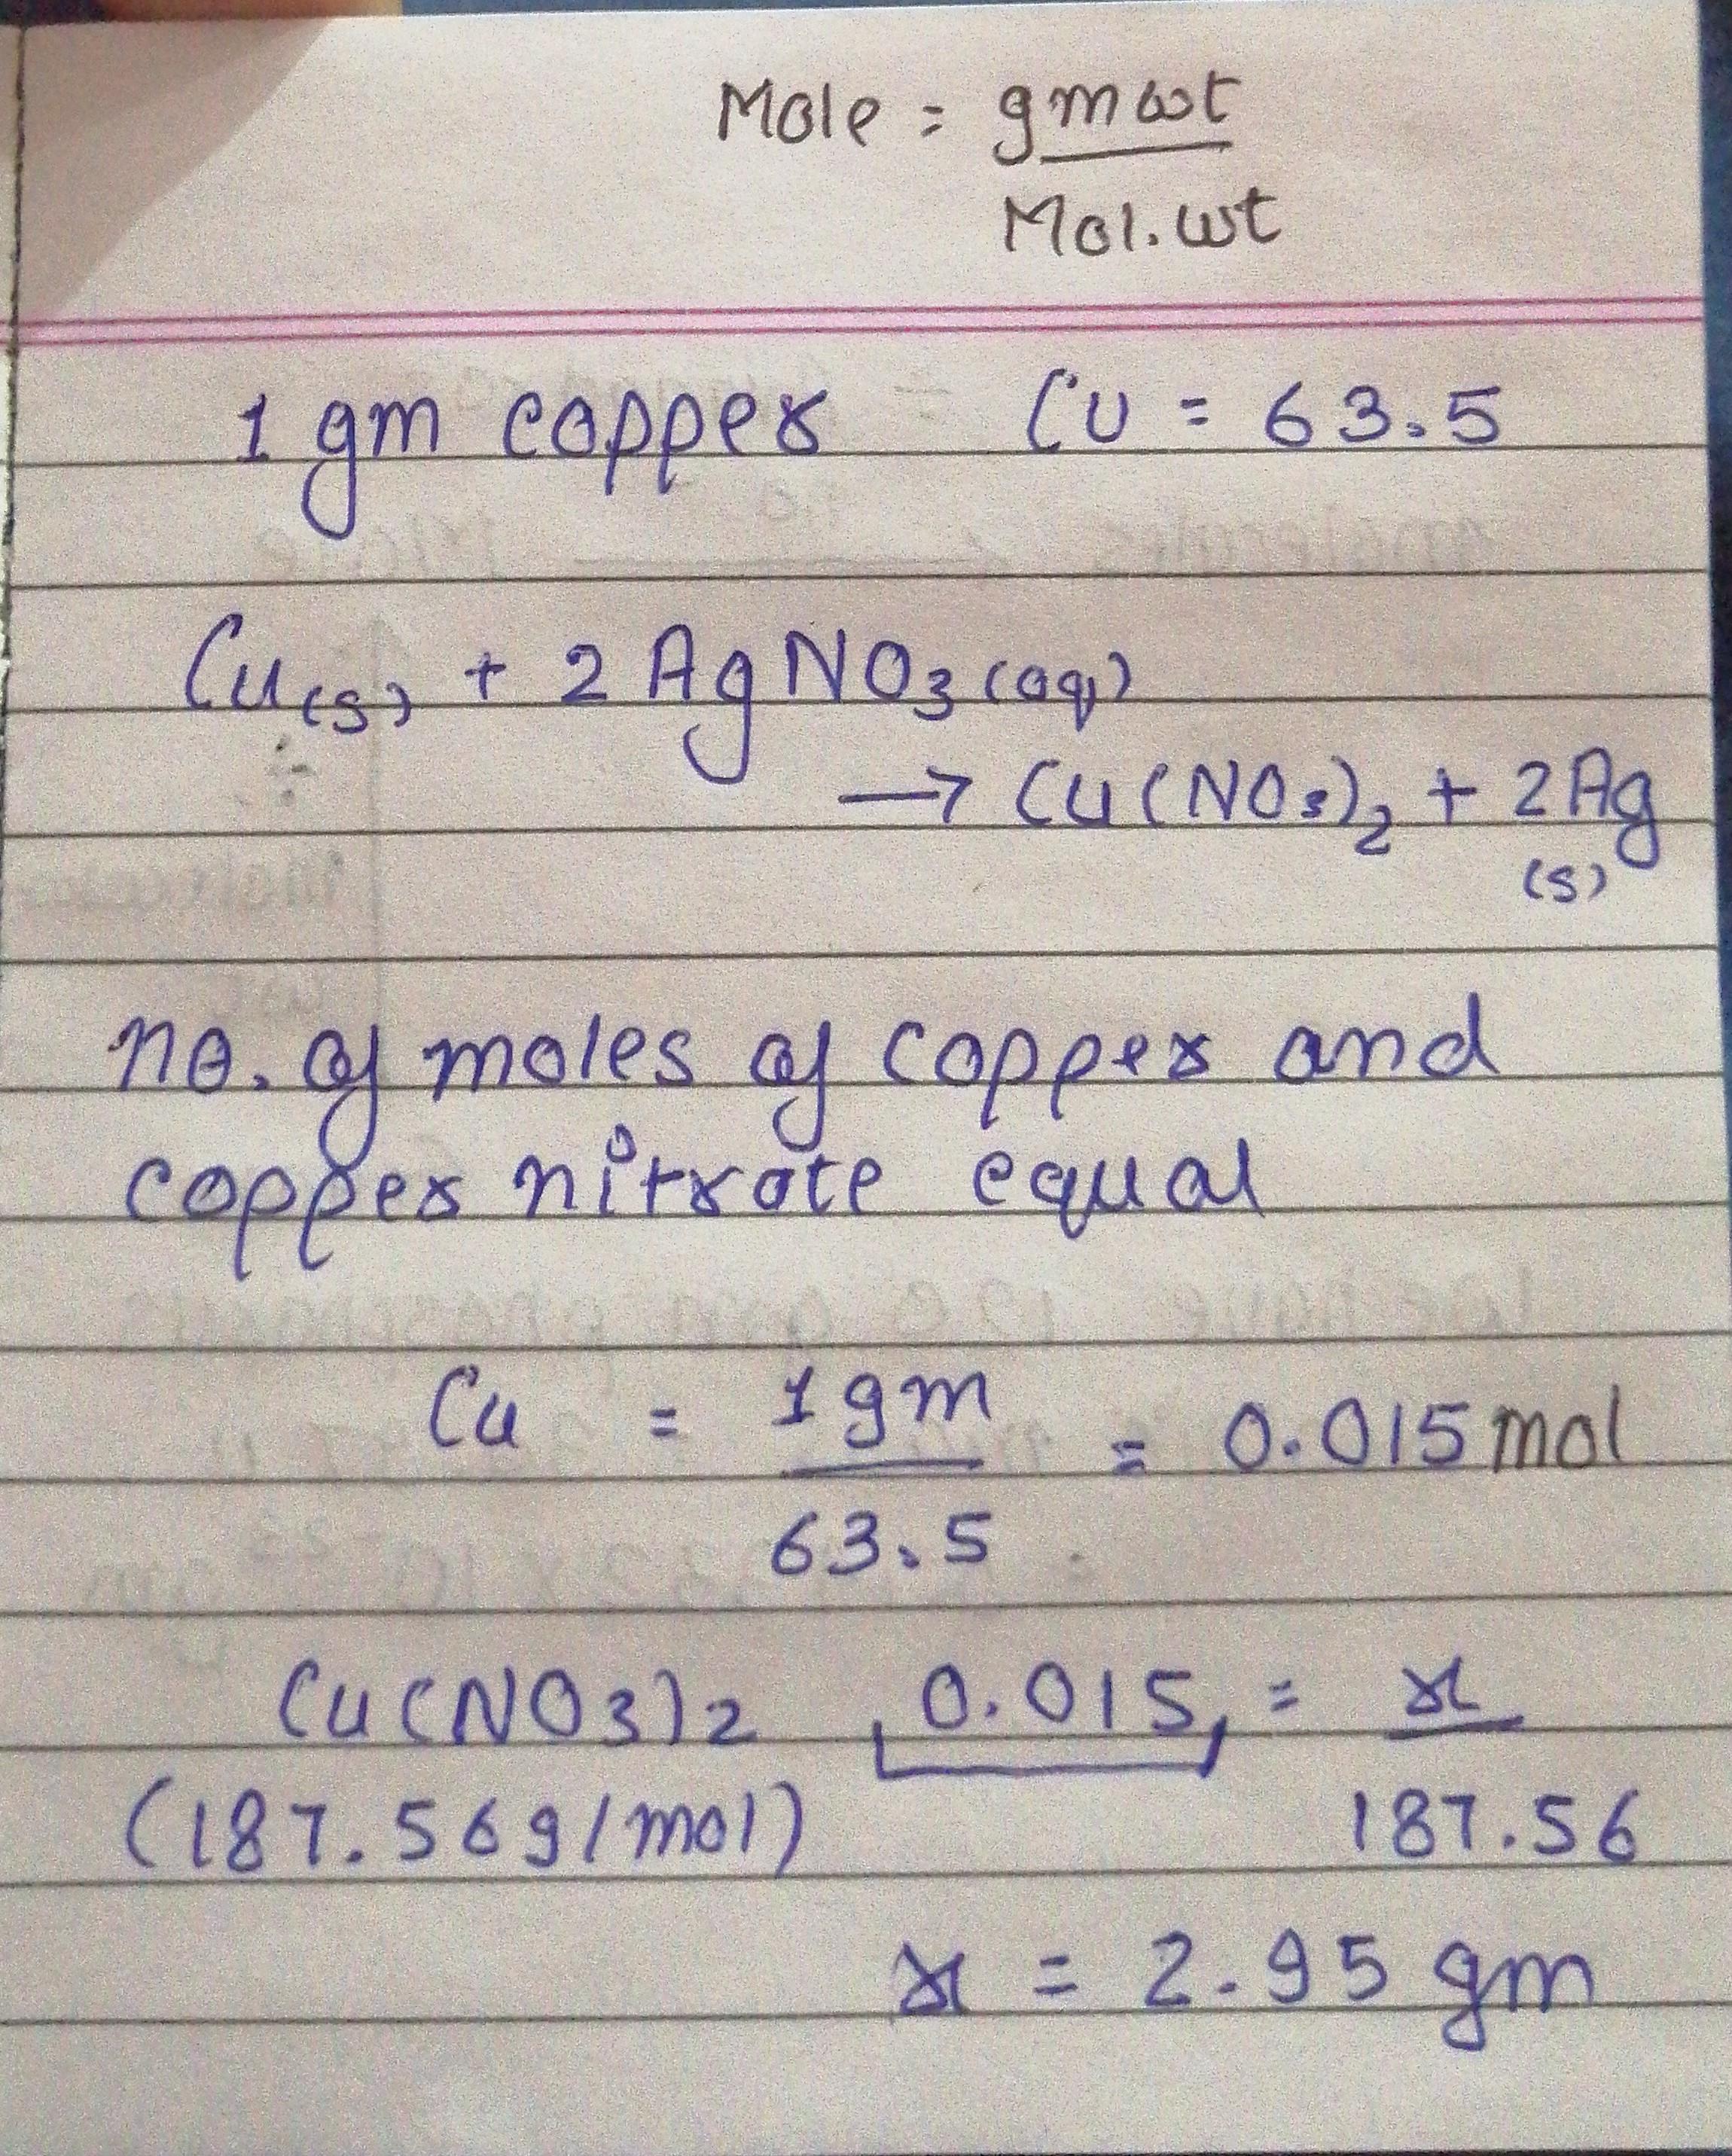 Mole = gm wt
Mol. wt
1 gm copper Cu = 63.5
Cu(s) + 2 AgNO3 (aq)
→ Cu(NO3)2 + 2Ag
(s)
no. of moles of copper and
copper nitrate equal
Cu = 1 gm = 0.015 mol
63.5
Cu(NO3)2 0.015 = x
(187.56g/mol) 187.56
x = 2.95 gm